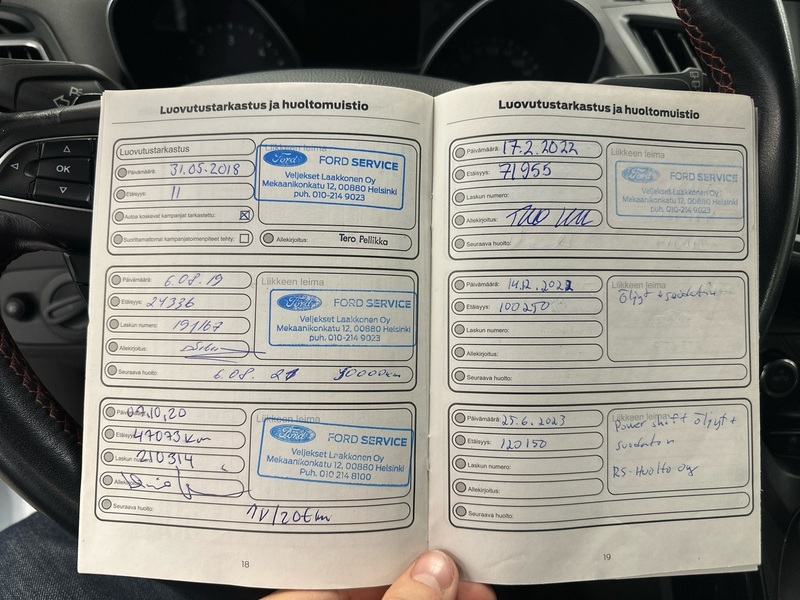 Luovutustarkastus ja huoltomuistio
Luovutustarkastus
Päivämäärä: 31.05.2018
Etäisyys: 11
Autoa koskevat kampanjat tarkastettu:
Suorittamattomat kampanjatoimenpiteet tehty:
Liikkeen leima
Ford FORD SERVICE
Veljekset Laakkonen Oy
Mekaanikonkatu 12, 00880 Helsinki
puh. 010-214 9023
Allekirjoitus: Tero Pellikka
Päivämäärä: 6.08.19
Etäisyys: 24336
Laskun numero: 191167
Allekirjoitus:
Seuraava huolto: 6.08. 21 30000km
Liikkeen leima
Ford FORD SERVICE
Veljekset Laakkonen Oy
Mekaanikonkatu 12, 00880 Helsinki
puh. 010-214 9023
07.10,20
47073 km
210314
Seuraava huolto: 1V/20tkm
Liikkeen leima
Ford FORD SERVICE
Veljekset Laakkonen Oy
Mekaanikonkatu 12, 00880 Helsinki
Puh. 010 214 8100
18
Luovutustarkastus ja huoltomuistio
Päivämäärä: 17.2.2022
Etäisyys: 71955
Laskun numero:
Allekirjoitus:
Seuraava huolto:
Liikkeen leima
Ford FORD SERVICE
Veljekset Laakkonen Oy
Mekaanikonkatu 12, 00880 Helsinki
puh. 010-214 9023
Päivämäärä: 14.12.2022
Etäisyys: 100250
Laskun numero:
Allekirjoitus:
Seuraava huolto:
Liikkeen leima
Öljyt + suodatin
Päivämäärä: 25.6.2023
Etäisyys: 120150
Laskun numero:
Allekirjoitus:
Seuraava huolto:
Liikkeen leima
Power shift öljyt +
suodatin
RS-Huolto oy
19
OK